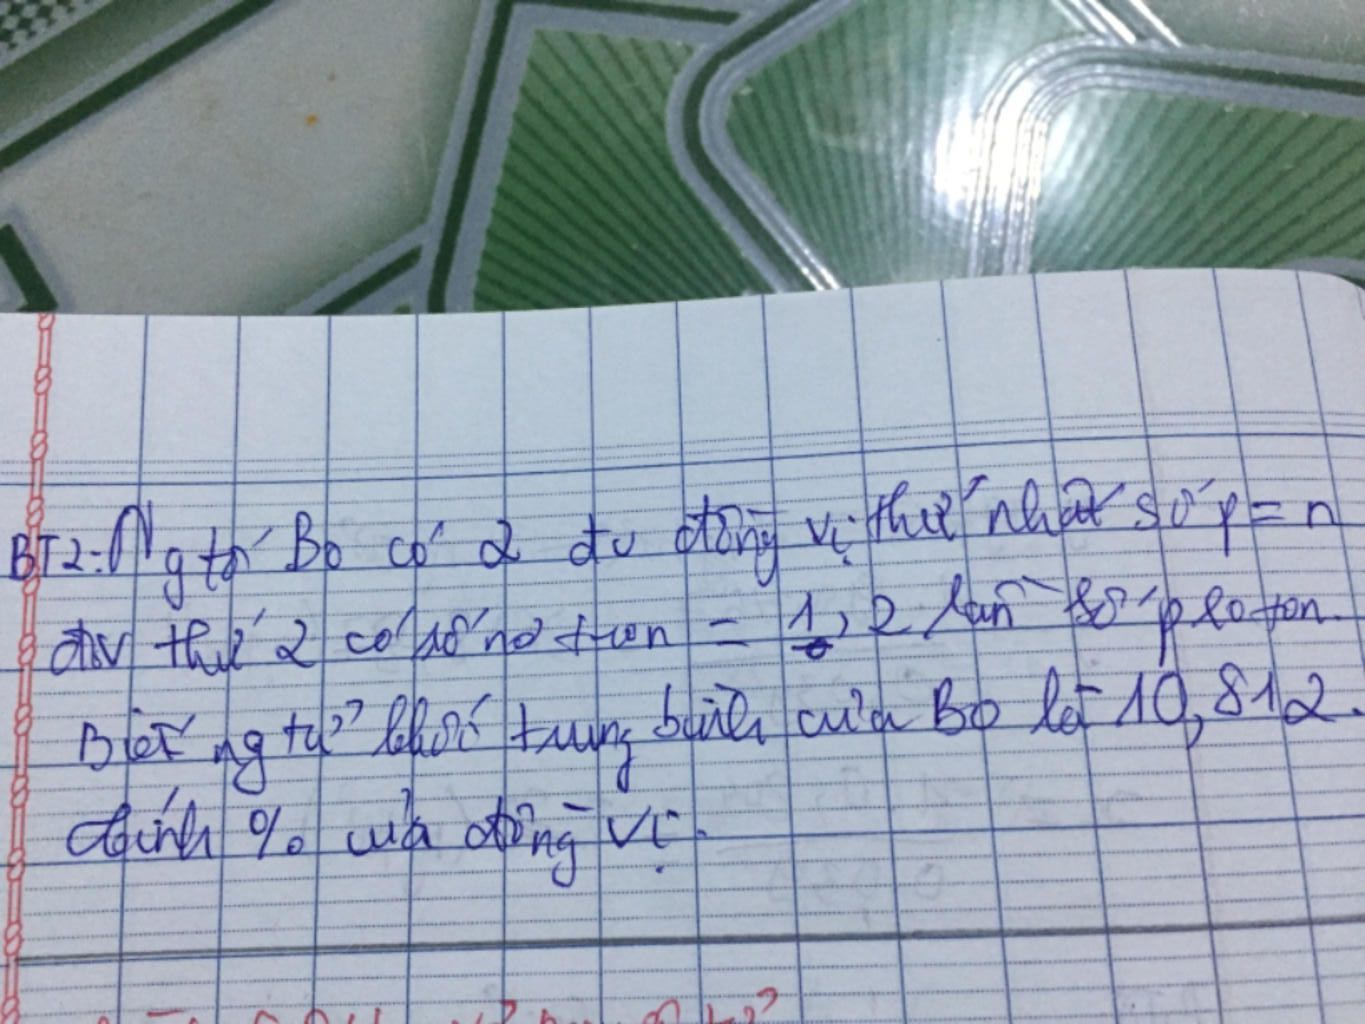 BT2: Ng tố Bo có 2 đv đồng vị thứ nhất số p = n
đv thứ 2 có số nơ tron = 1,2 lần số proton.
Biết ng tử khối trung bình của Bo là 10,812.
tính % của đồng vị.